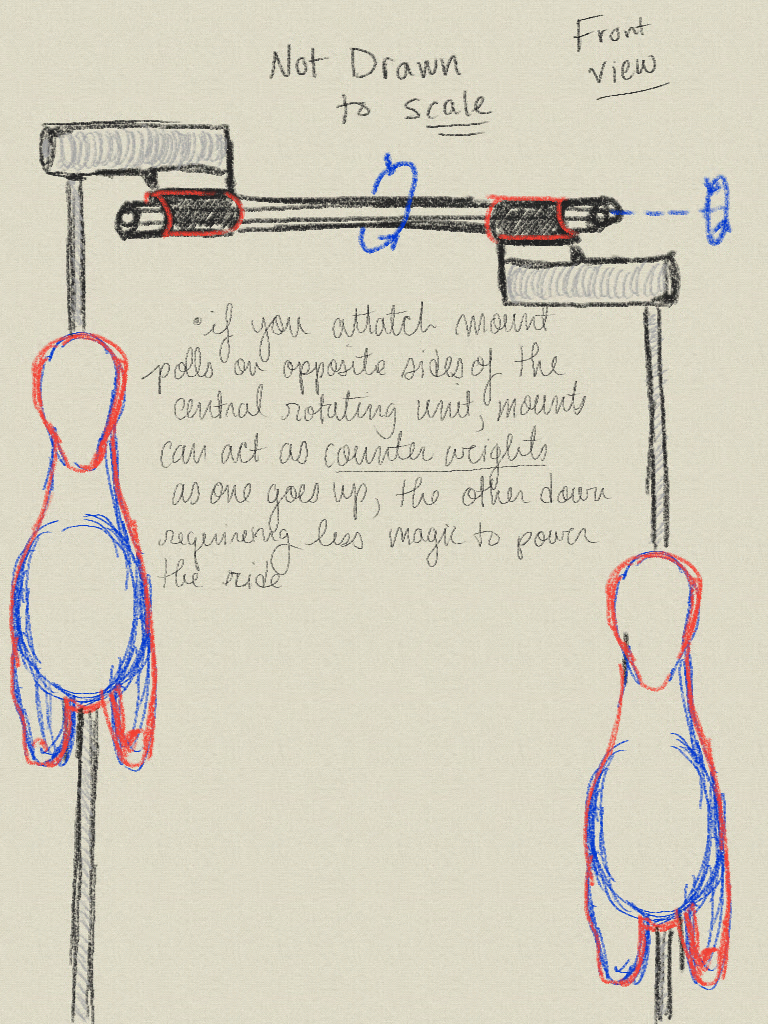 Not Drawn
to scale
Front
view
• if you attatch mount
polls on opposite sides of the
central rotating unit, mounts
can act as counter weights
as one goes up, the other down
requireing less magic to power
the ride